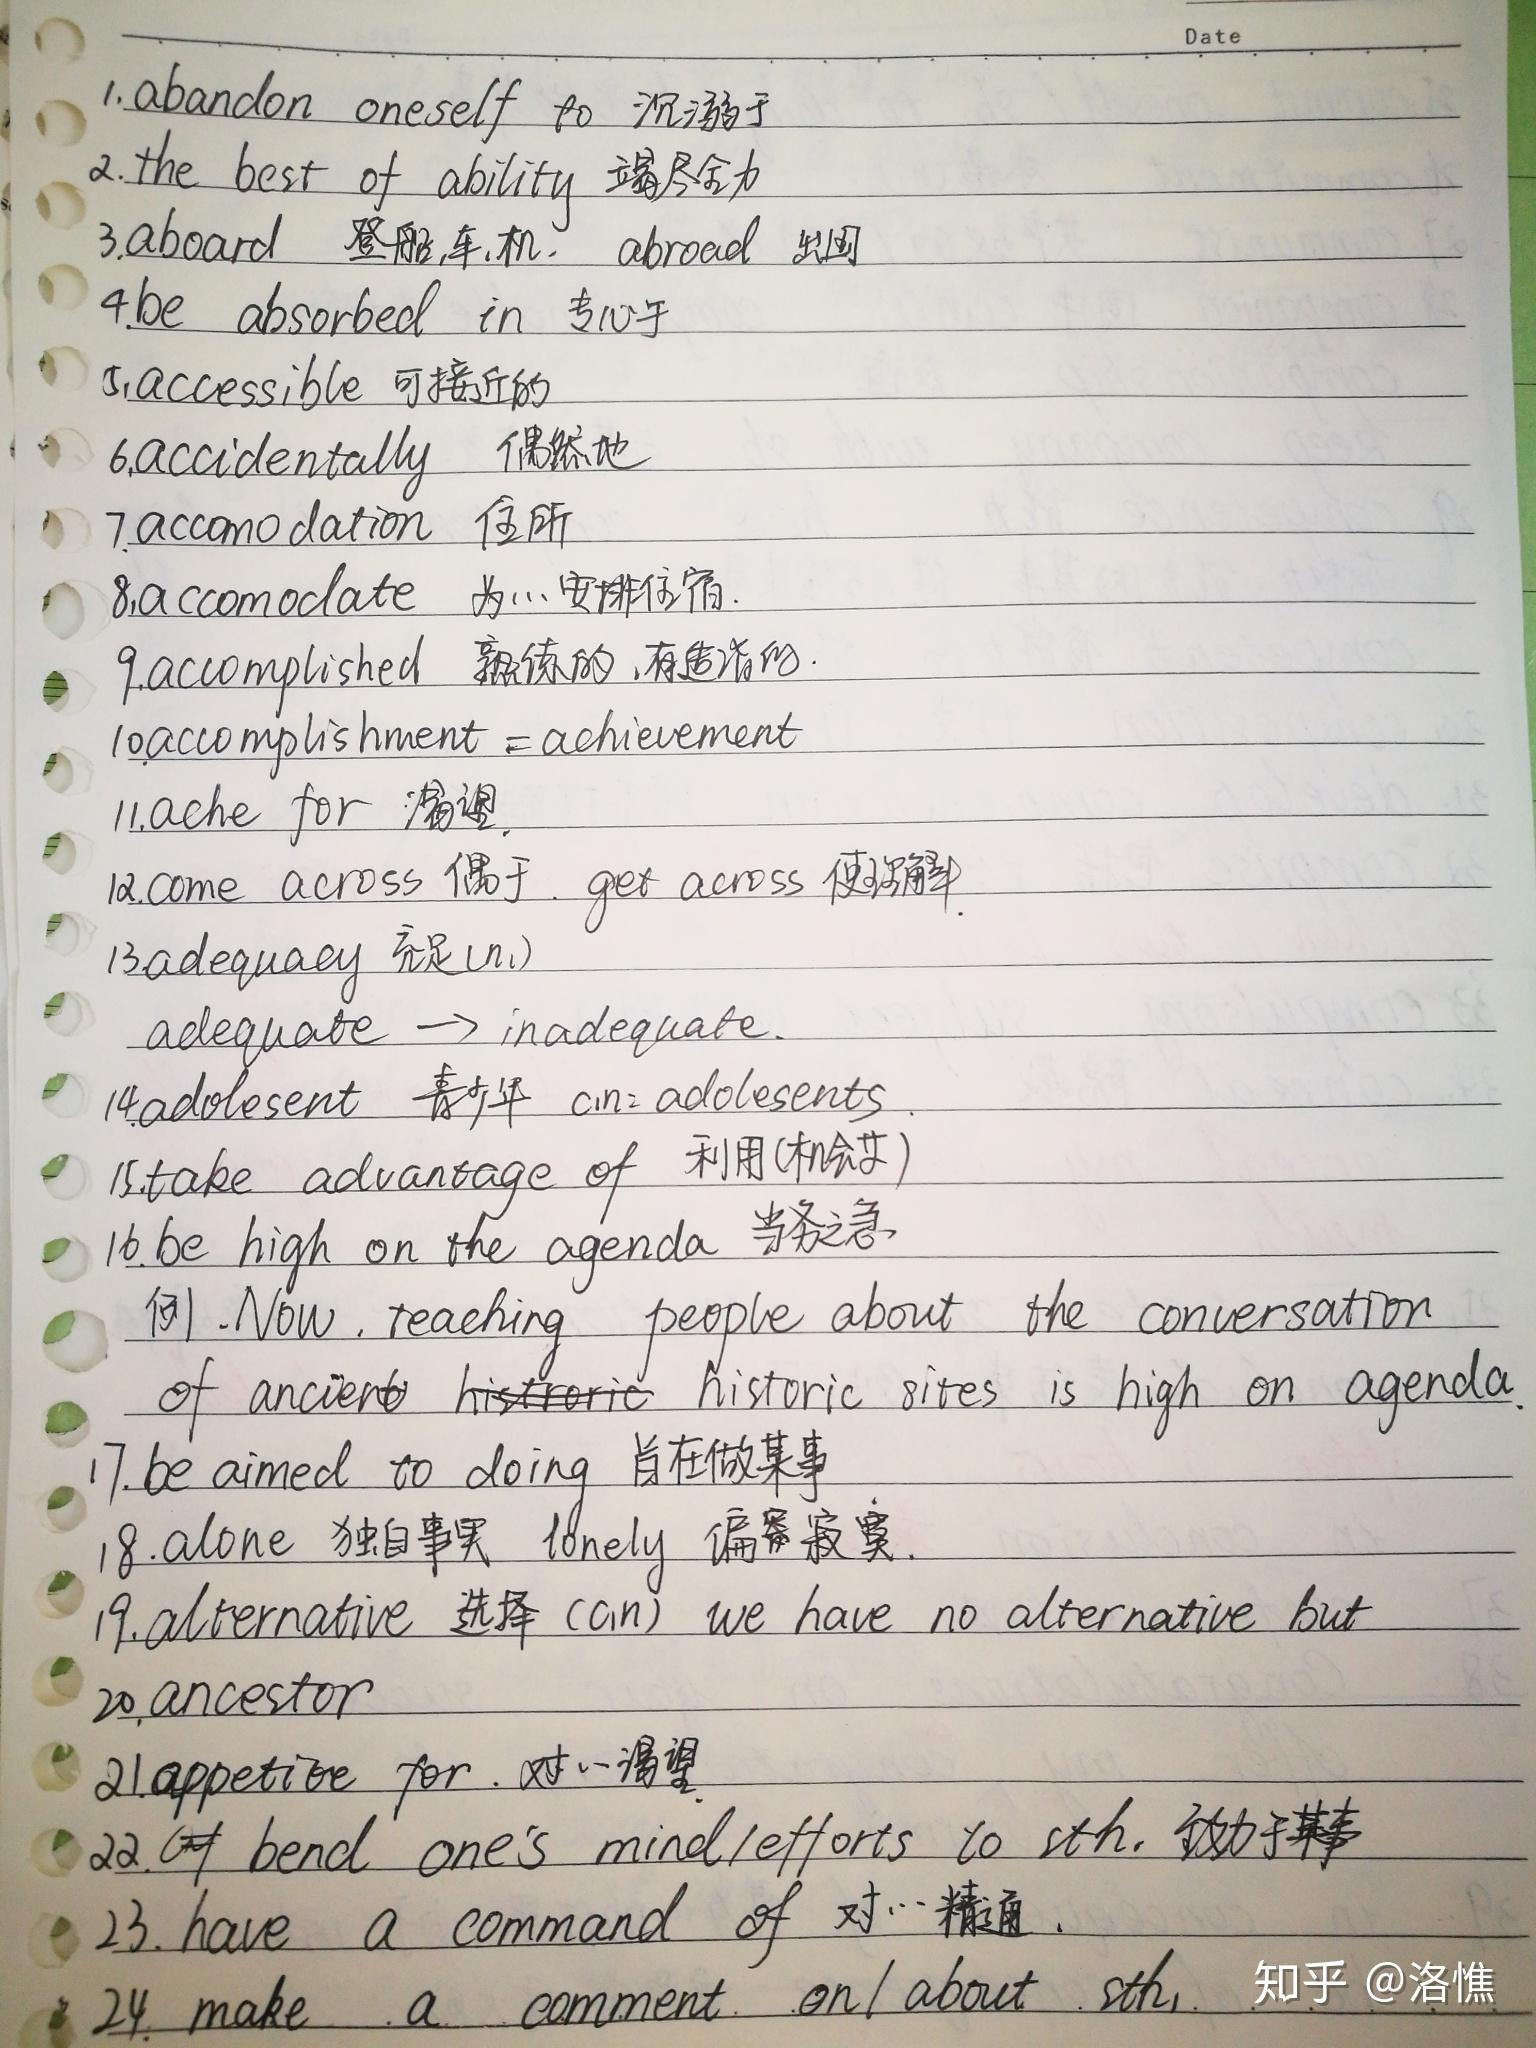 Date
1.abandon oneself to 沉溺于
2.the best of ability 竭尽全力
3.aboard 登船,车,机. abroad 出国
4.be absorbed in 专心于
5.accessible 可接近的
6.accidentally 偶然地
7.accomodation 住所
8.accomodate 为...安排住宿.
9.accomplished 熟练的,有造诣的.
10.accomplishment = achievement
11.ache for 渴望.
12.come across 偶于. get across 使理解.
13.adequacy 充足(n.)
adequate → inadequate.
14.adolesent 青少年 c.n= adolesents.
15.take advantage of 利用(机会等)
16.be high on the agenda 当务之急
例.Now, teaching people about the conversation
of ancient histroric historic sites is high on agenda.
17.be aimed to doing 旨在做某事
18.alone 独自事实 lonely 偏 寂寞.
19.alternative 选择 (c.n) we have no alternative but
20.ancestor
21.appetite for. 对...渴望.
22. bend one's mind/efforts to sth. 致力于某事
23.have a command of 对...精通.
24.make a comment on/about sth.
知乎 @洛憔